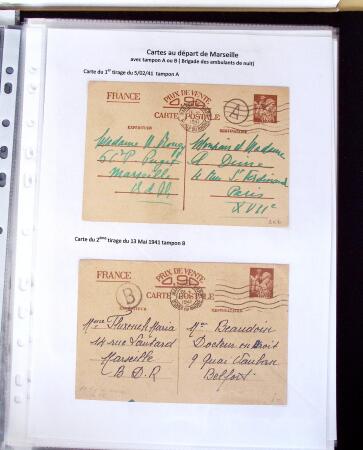 Cartes au départ de Marseille
avec tampon A ou B ( Brigade des ambulants de nuit)
Carte du 1er tirage du 5/02/41 tampon A
FRANCE
PRIX DE VENTE
0,90
CARTE POSTALE
EXPEDITEUR
DESTINATAIRE
A
Madame
Monsieur et Madame
Puget
Marseille
B.d.R
4 Rue St Ferdinand
Paris
XVIIe
Carte du 2ème tirage du 13 Mai 1941 tampon B
FRANCE
PRIX DE VENTE
0,90
CARTE POSTALE
B
EXPEDITEUR
DESTINATAIRE
Mme Maria
14 rue
Marseille
B D R
Me Beaudoin
Docteur en Droit
9 Quai Vauban
Belfort